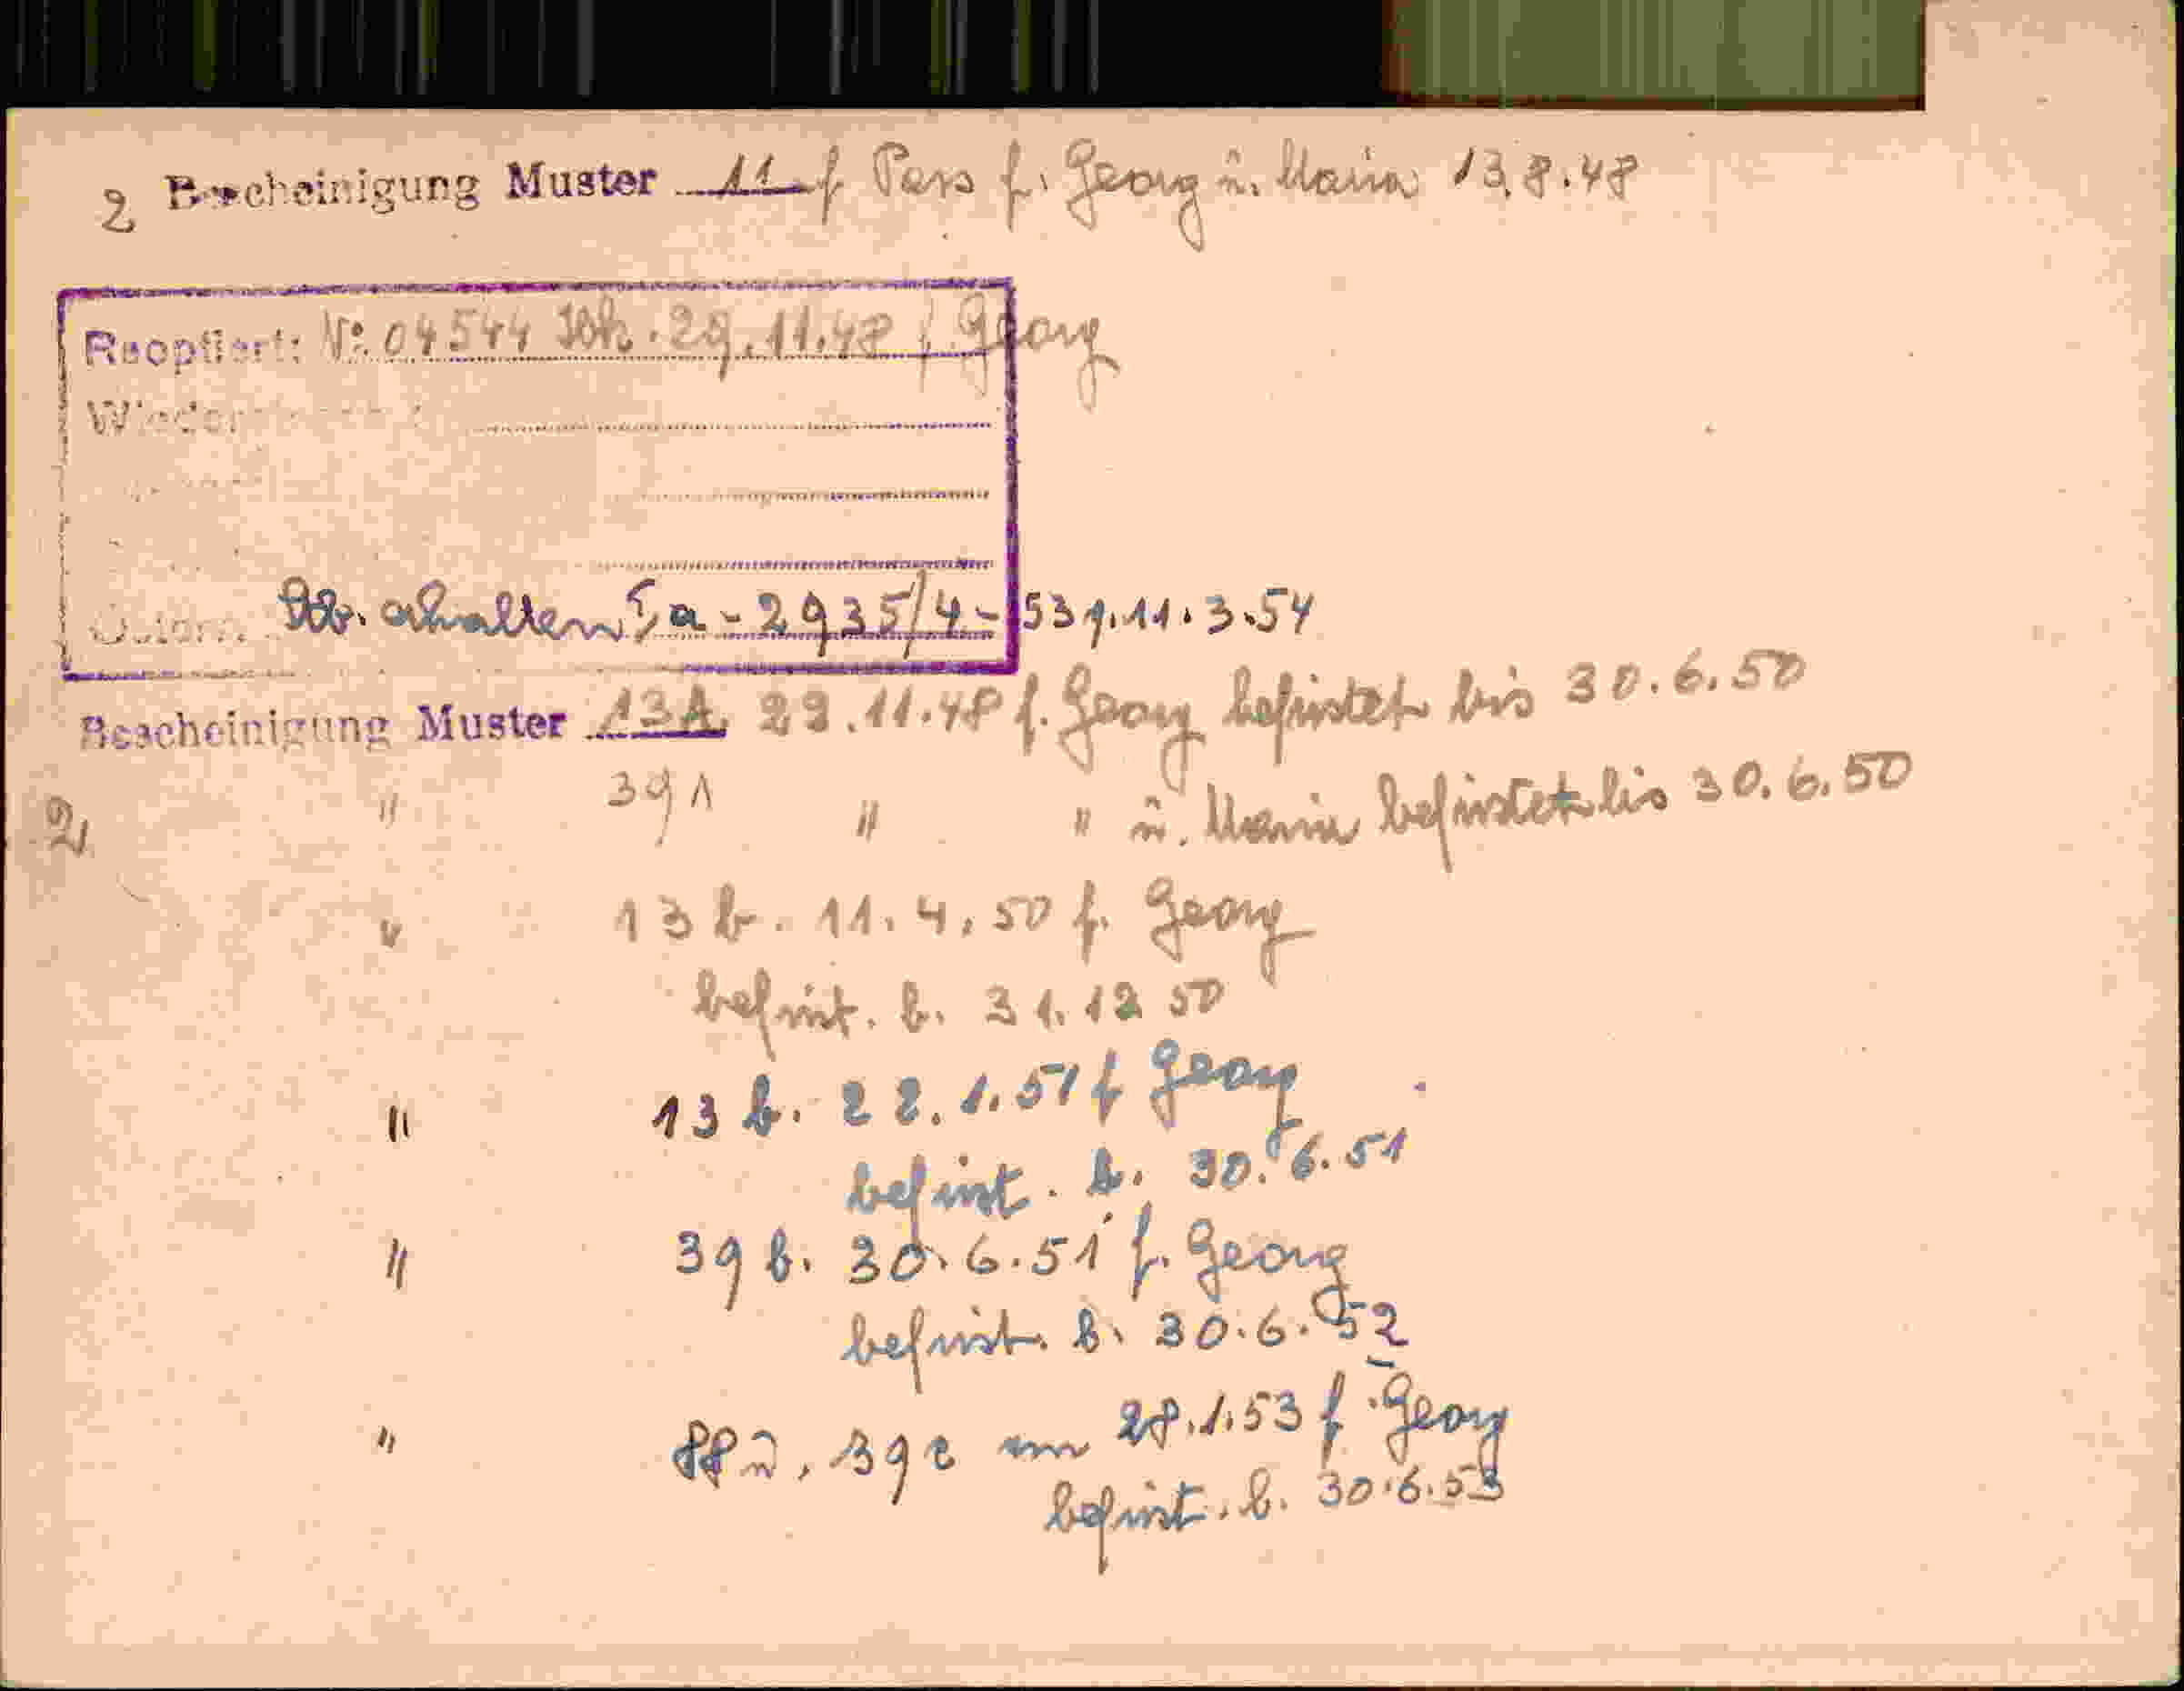 2 Bescheinigung Muster 11 f Pass f. Georg u. Maria 13.8.48
Reoptiert: No. 04544 29.11.48 f. Georg
Wieder
a - 2935/4 - 53 11.3.54
Bescheinigung Muster 13A 29.11.48 f. Georg befristet bis 30.6.50
2 " 39A " " u. Maria befristet bis 30.6.50
" 13 b. 11.4.50 f. Georg
befrist. b. 31.12 50
" 13 b. 22.1.51 f Georg
befrist. b. 30.6.51
" 39 b. 30.6.51 f. Georg
befrist. b. 30.6.52
" 88 u. 39 28.1.53 f. Georg
befrist. b. 30.6.53